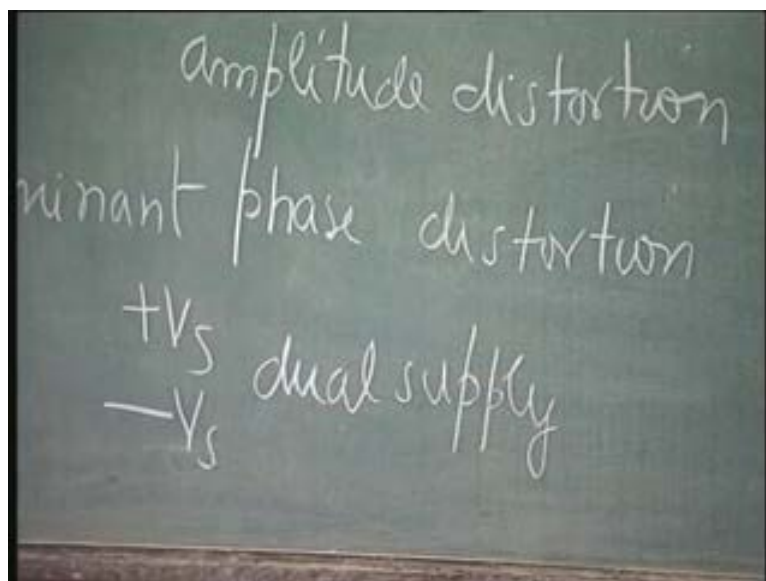 amplitude distortion
ninant phase distortion
+Vs dual supply
-Vs